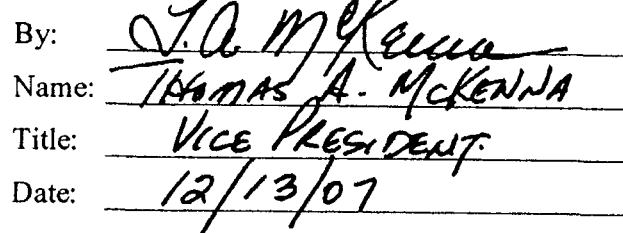 By: T. A. McKenna
Name: THOMAS A. McKENNA
Title: VICE PRESIDENT.
Date: 12/13/07